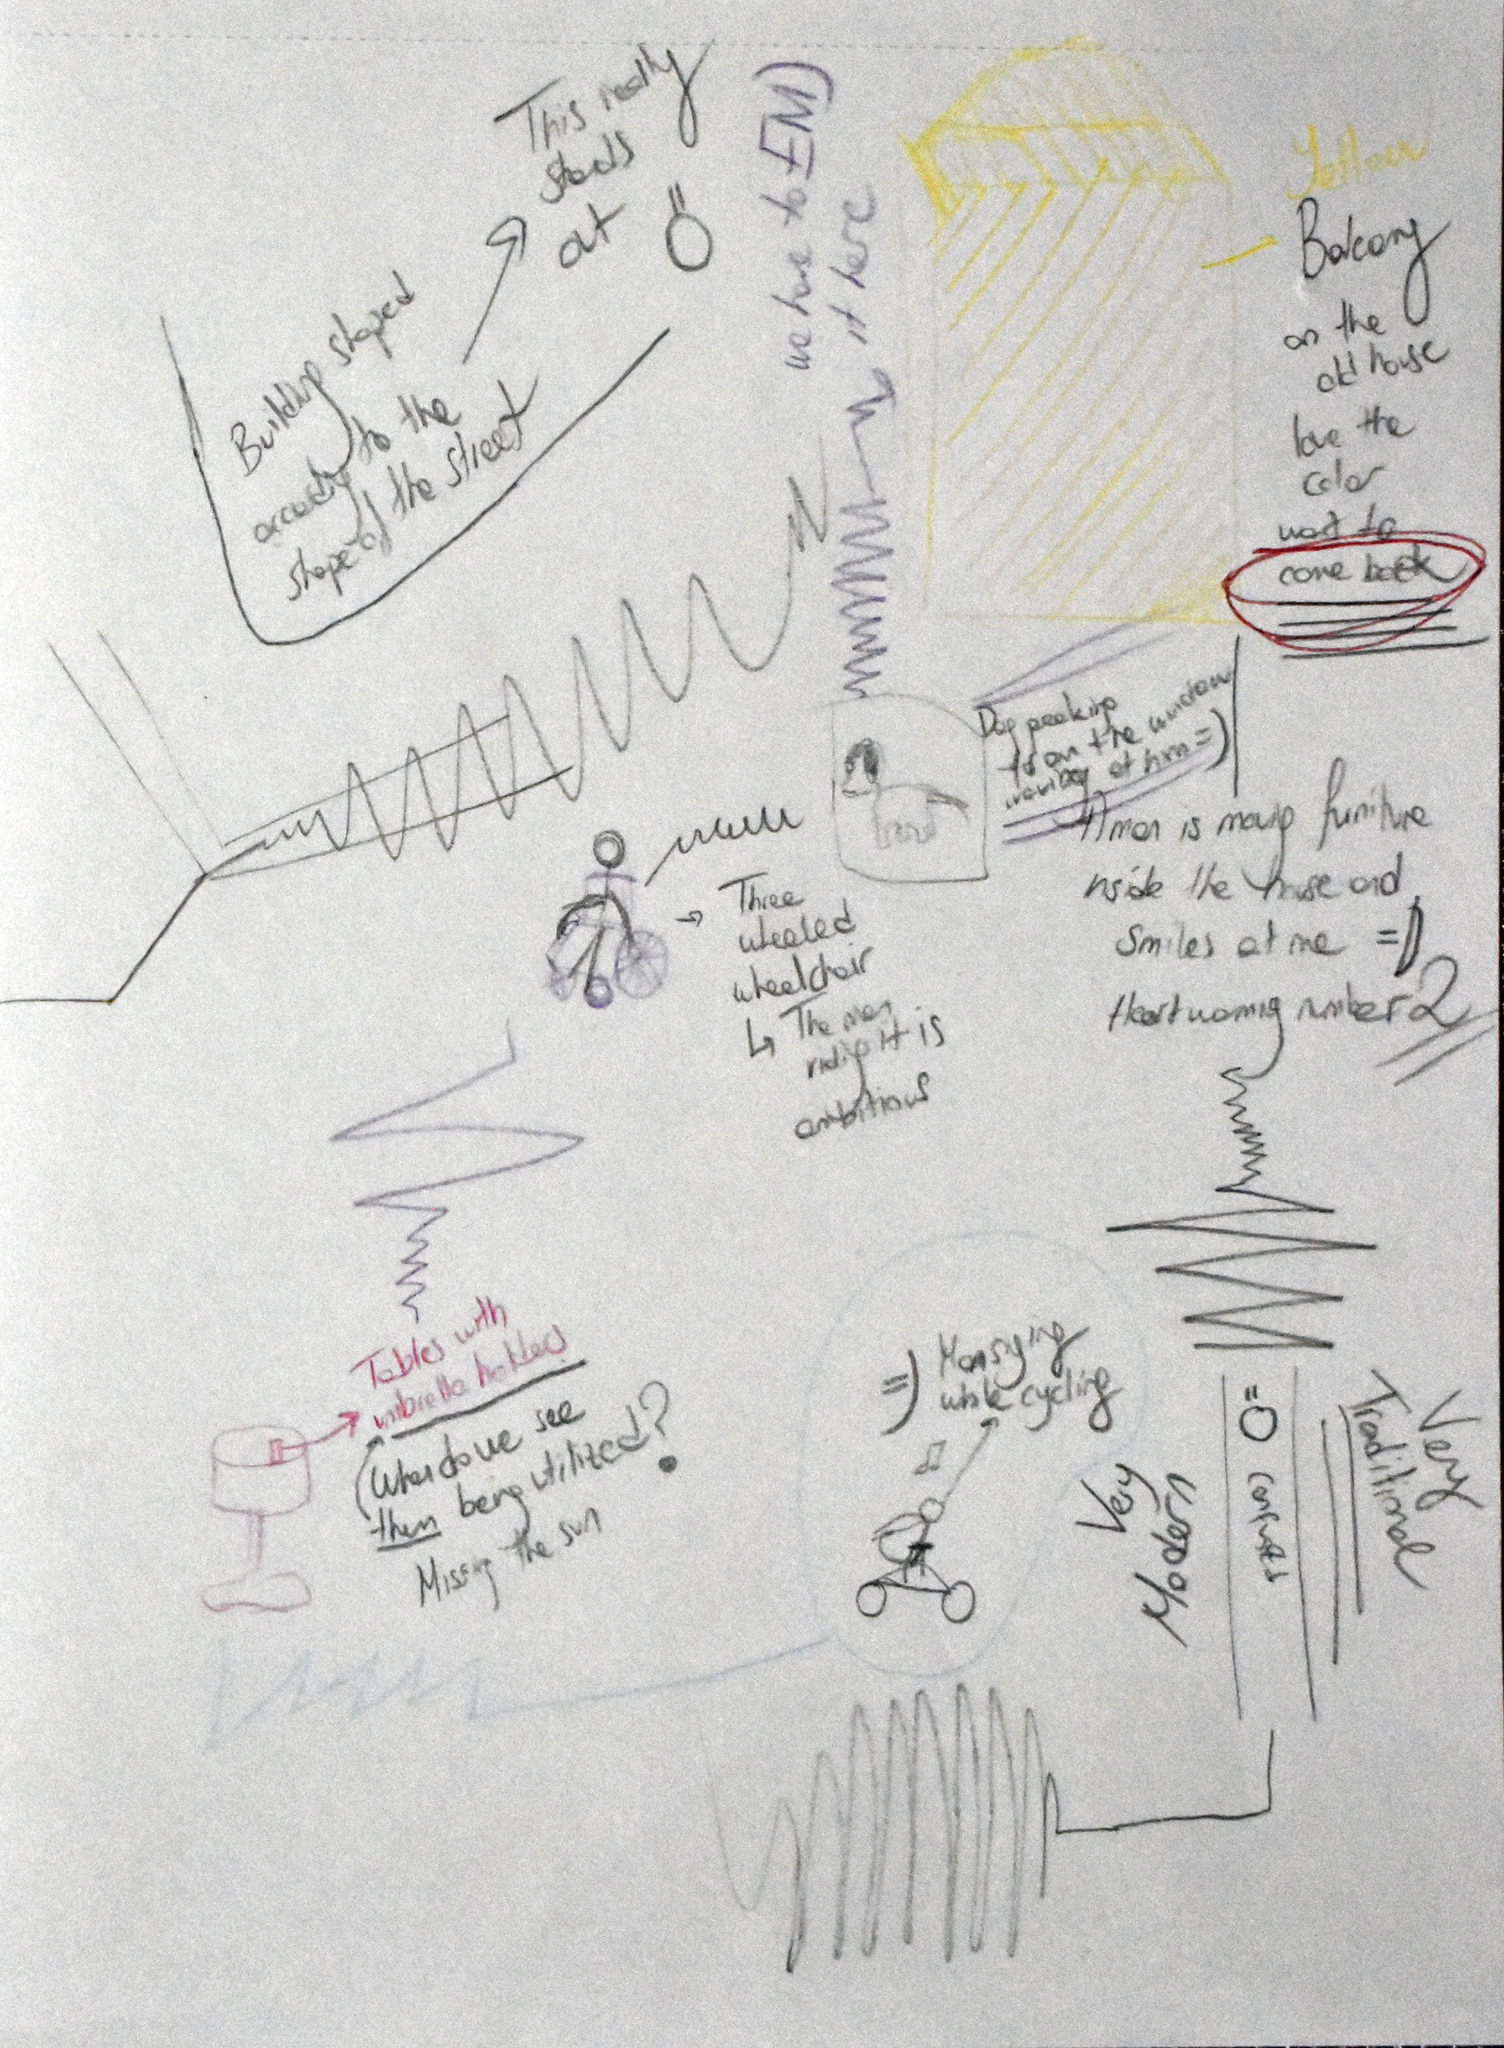 This really
stands
out
Building shaped
according to the
shape of the street
we have to EM)
it here
Yellow
Balcony
on the
old house
love the
color
want to
come back
Dog peeking
on the window
at him =)
A man is moving furniture
inside the house and
smiles at me =D
Heartwarming number 2
Three
wheeled
wheelchair
↳ The man
riding it is
ambitious
Tables with
umbrella holders
When do we see
them being utilized?
Missing the sun
=) Man singing
while cycling
Very
Modern
Very
Traditional